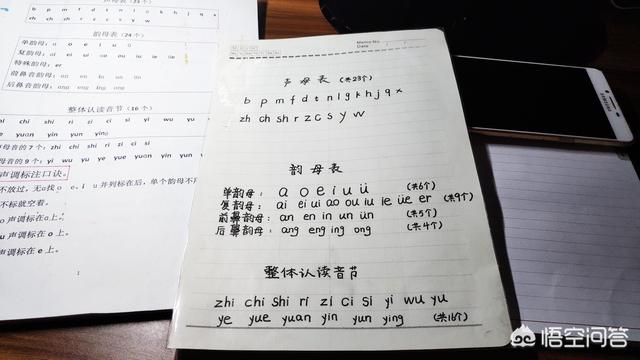 声母表 (23个)
b p m f d t n l g k h j q x
zh ch sh r z c s y w
韵母表 (24个)
单韵母: a o e i u ü
复韵母: ai ei ui ao ou iu ie üe
特殊韵母: er
前鼻音韵母: an en in un ün
后鼻音韵母: ang eng ing ong
整体认读音节 (16个)
chi shi ri zi ci si yi wu yu
yuan yin yun ying
音的 7 个: zhi chi shi ri zi ci si
母音的 9 个: yi wu yu ye yue yuan yin yun
声调标注口诀。
不放过, 无 a 找 o、e, i u 并列标在后, 单个韵母不
不标就空着。
声调标在 a 上。
声调标在 o 上。
声调标在 e 上。
1
Memo No.
Date
声母表 (共23个)
b p m f d t n l g k h j q x
zh ch sh r z c s y w
韵母表
单韵母: a o e i u ü (共6个)
复韵母: ai ei ui ao ou iu ie üe er (共9个)
前鼻韵母: an en in un ün (共5个)
后鼻韵母: ang eng ing ong (共4个)
整体认读音节
zhi chi shi ri zi ci si yi wu yu
ye yue yuan yin yun ying (共16个)
SAMSUNG
悟空问答